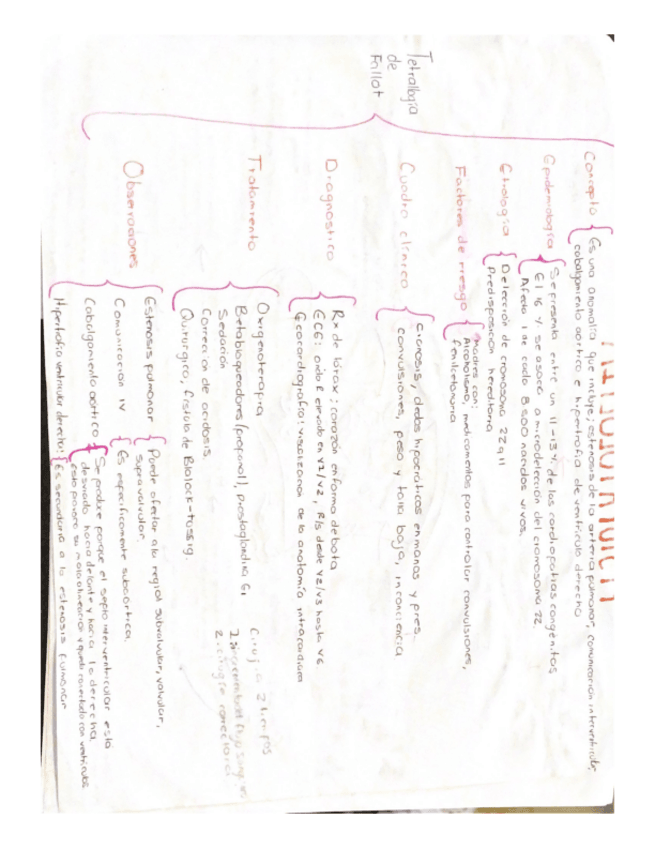 Tetralogía
de
Fallot
Concepto
Es una anomalía que incluye: estenosis de la arteria pulmonar, comunicación interventricular,
cabalgamiento aórtico e hipertrofia de ventrículo derecho
Epidemiología
Se presenta entre un 11-13% de las cardiopatías congénitas
El 16 % se asocia a microdelección del cromosoma 22.
Afecta 1 de cada 8 500 nacidos vivos.
Etiología
Delección de cromosoma 22q11
Predisposición hereditaria
Factores de riesgo
madres con:
Alcoholismo, medicamentos para controlar convulsiones,
fenilcetonuria
Cuadro clínico
cianosis, dedos hipocráticos en manos y pies.
convulsiones, peso y talla baja, inconciencia
Diagnostico
Rx de tórax: corazón en forma de bota
ECG: onda R elevado en V1/V2, R/s desde V2/V3 hasta V6
Ecocardiografía: visualización de la anatomía intracardiaca
Tratamiento
Oxigenoterapia
Betabloqueadores (propanol), prostaglandina E1
Sedación
Corrección de acidosis.
Quirúrgico, fistula de Blalock-tussig.
Cirugía 2 tiempos
2. cirugía correctora
Observaciones
Estenosis pulmonar
Puede afectar a la región subvalvular, valvular,
supravalvular.
Comunicación IV
Es específicamente subaórtica.
Cabalgamiento aórtico
Se produce porque el septo interventricular está
desviado hacia delante y hacia la derecha,
Hipertrofia ventricular derecha:
Es secundaria a la estenosis pulmonar